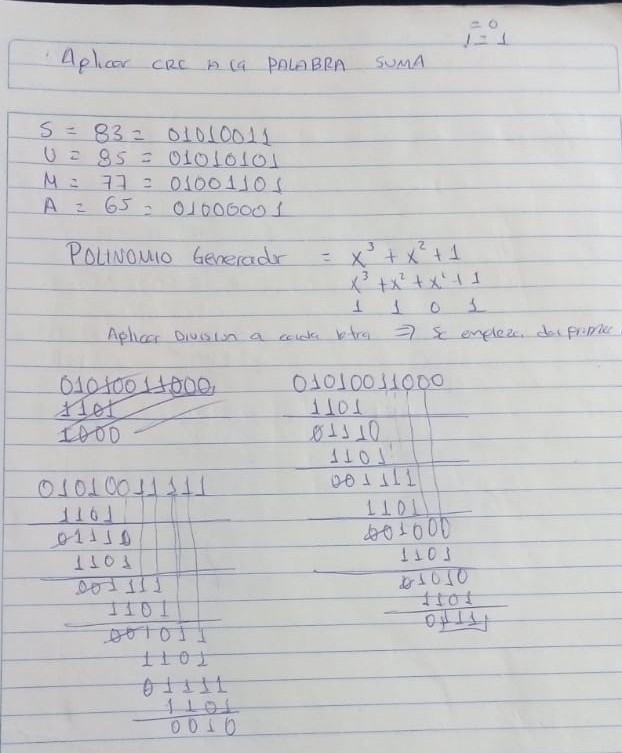 = 0
1 = 1
Aplicar CRC A la PALABRA SUMA
S = 83 = 01010011
U = 85 = 01010101
M = 77 = 01001101
A = 65 = 01000001
POLINOMIO Generador = x³ + x² + 1
x³ + x² + x¹ + 1
1 1 0 1
Aplicar Division a cada letra ⇒ Se empieza
01010011000
1101
1000
01010011000
1101
01110
1101
001111
1101
001000
1101
01010
1101
0111
01010011111
1101
01110
1101
001111
1101
001011
1101
01111
1101
0010